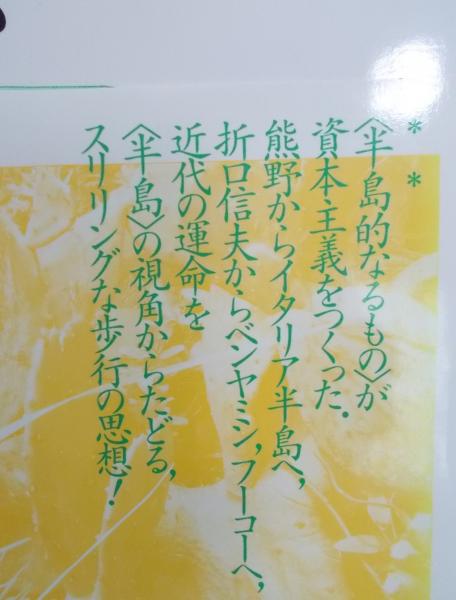 **
〈半島的なるもの〉が
資本主義をつくった.
熊野からイタリア半島へ,
折口信夫からベンヤミン,フーコーへ,
近代の運命を
〈半島〉の視角からたどる,
スリリングな歩行の思想!